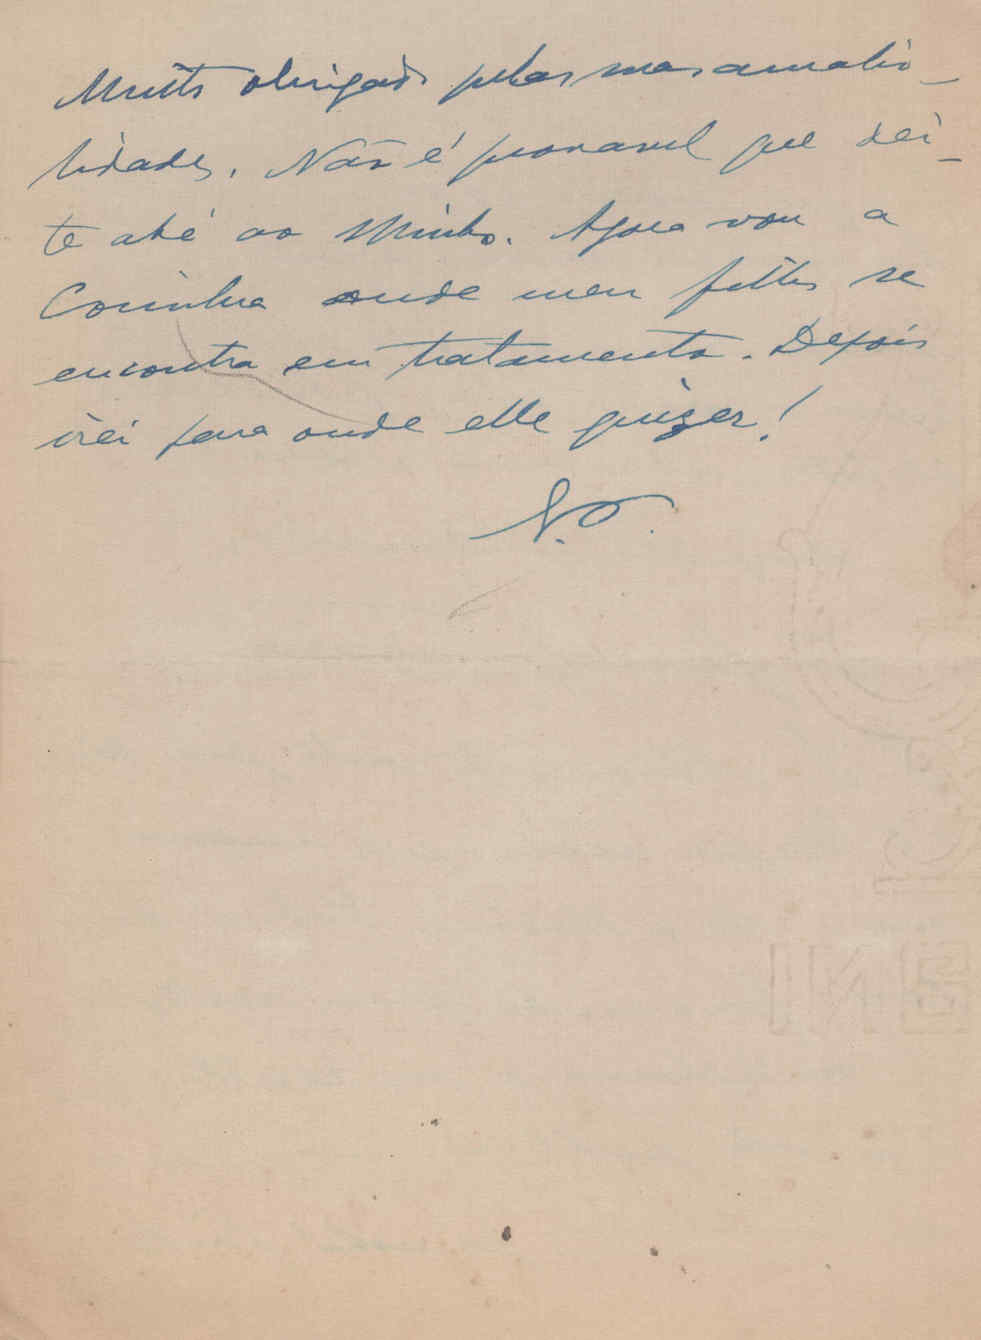 Muito obrigado pelas suas amabi-
lidades. Não é provavel que dei-
te até ao Minho. Agora vou a
Coimbra onde meu filho se
encontra em tratamento. Depois
irei para onde elle quizer!
N.O.